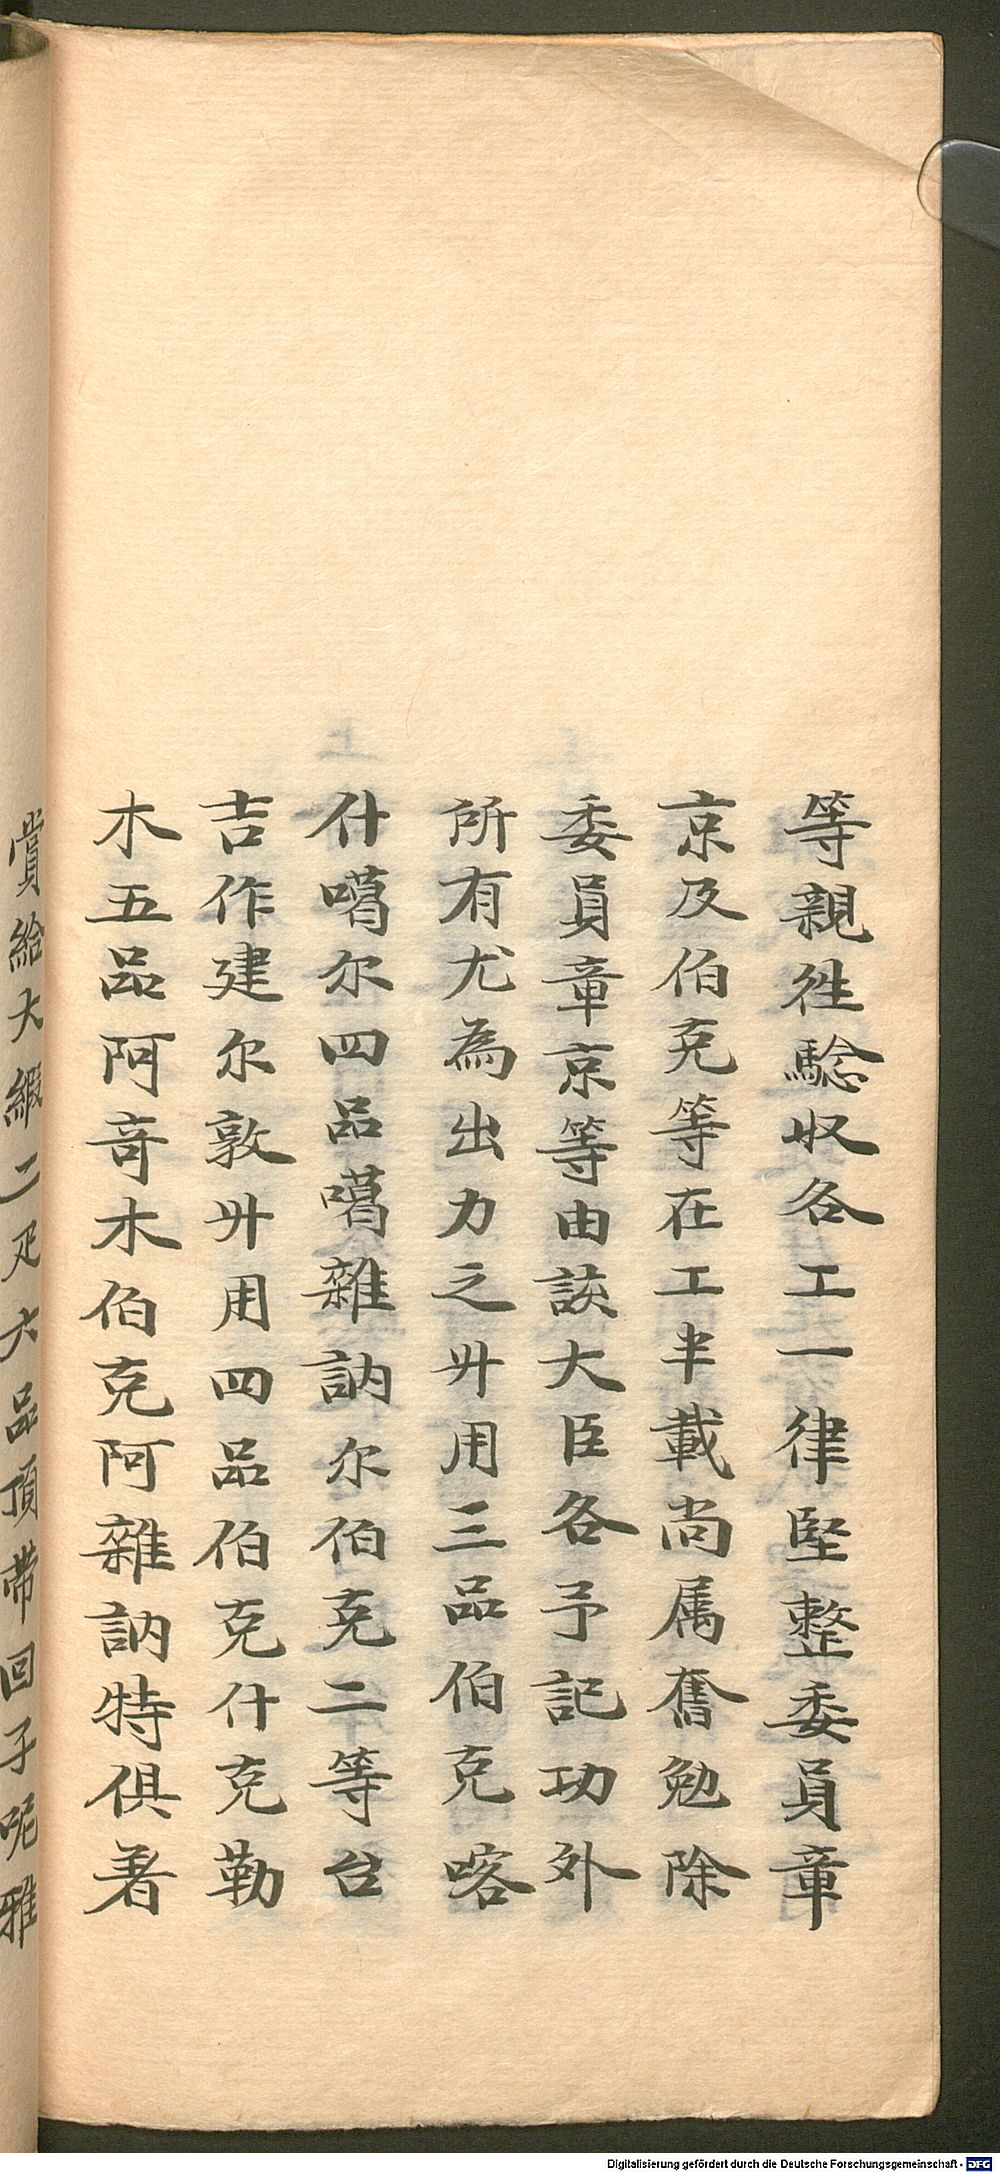 等親徃騐収各工一律堅整委員章
京及伯克等在工半載尚属奮勉除
委員章京等由該大臣各予記功外
所有尤為出力之升用三品伯克喀
什噶尔四品噶雜訥尔伯克二等台
吉作建尔敦升用四品伯克什克勒
木五品阿竒木伯克阿雜訥特俱著
賞給大緞二疋六品頂帶回子呢雅
Digitalisierung gefördert durch die Deutsche Forschungsgemeinschaft - DFG